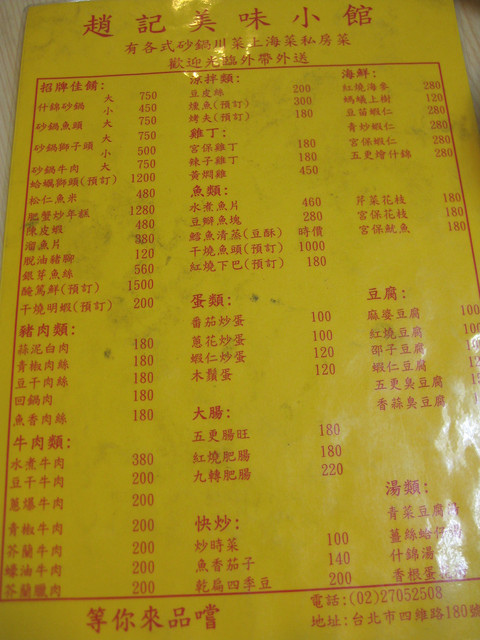 趙記美味小館
有各式砂鍋川菜上海菜私房菜
歡迎光臨外帶外送
招牌佳餚:
什錦砂鍋 大 750
小 450
砂鍋魚頭 大 750
砂鍋獅子頭 大 750
小 500
砂鍋牛肉 大 750
蛤蠣獅頭(預訂) 1200
松仁魚米 480
肥蟹炒年糕 1280
陳皮蝦 480
溜魚片 380
脫油豬腳 120
銀芽魚絲 560
醃篤鮮(預訂) 1500
干燒明蝦(預訂) 200
豬肉類:
蒜泥白肉 180
青椒肉絲 180
豆干肉絲 180
回鍋肉 180
魚香肉絲 180
牛肉類:
水煮牛肉 380
豆干牛肉 200
蔥爆牛肉 200
青椒牛肉 200
芥蘭牛肉 200
蠔油牛肉 200
芥蘭臘肉 200
涼拌類:
豆皮絲 200
燻魚(預訂) 300
烤夫(預訂) 180
雞丁:
宮保雞丁 180
辣子雞丁 180
黃燜雞 450
魚類:
水煮魚片 460
豆瓣魚塊 280
鱈魚清蒸(豆酥) 時價
干燒魚頭(預訂) 1000
紅燒下巴(預訂) 180
蛋類:
番茄炒蛋 100
蔥花炒蛋 100
蝦仁炒蛋 120
木鬚蛋 120
大腸:
五更腸旺 180
紅燒肥腸 180
九轉肥腸 220
快炒:
炒時菜 100
魚香茄子 140
乾扁四季豆 200
海鮮:
紅燒海參 280
螞蟻上樹 120
豆苗蝦仁 280
青炒蝦仁 280
宮保蝦仁 280
五更燴什錦 280
芹菜花枝 180
宮保花枝 180
宮保魷魚 180
豆腐:
麻婆豆腐 100
紅燒豆腐
邵子豆腐
蝦仁豆腐
五更臭豆腐
香蒜臭豆腐
湯類:
青菜豆腐湯
薑絲蛤仔湯
什錦湯
香根蛋
等你來品嚐
電話:(02)27052508
地址:台北市四維路180號